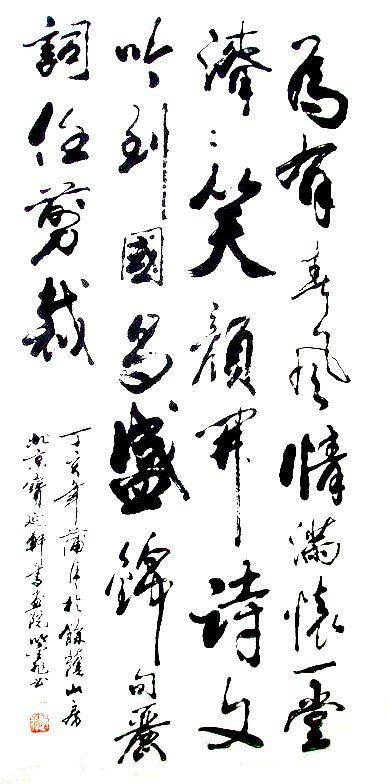 為有春風情滿懷一堂
濟〻笑顏開詩文
吟到國昌盛錦句麗
詞任剪裁
丁亥年蒲月於餘蔭山房
北京齊延軒書画院書